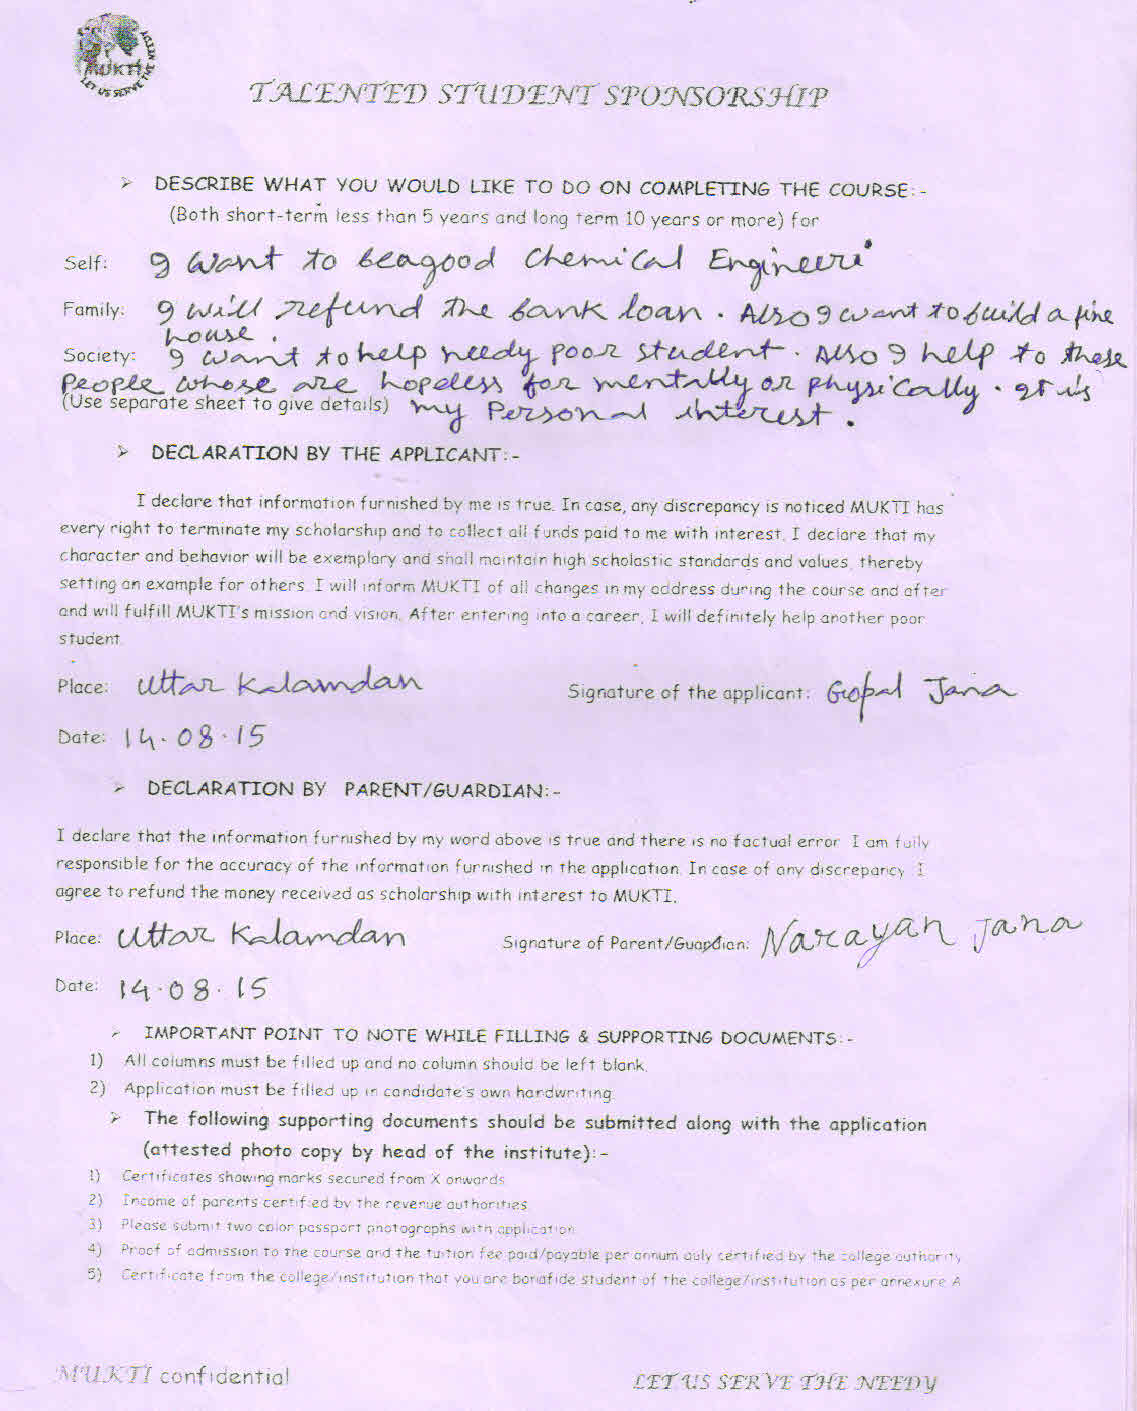 MUKTI
LET US SERVE THE NEEDY
TALENTED STUDENT SPONSORSHIP
➢ DESCRIBE WHAT YOU WOULD LIKE TO DO ON COMPLETING THE COURSE:-
(Both short-term less than 5 years and long term 10 years or more) for
Self: I want to be a good Chemical Engineer.
Family: I will refund the bank loan. Also I want to build a fine
house.
Society: I want to help needy poor student. Also I help to these
People whose are hopeless for mentally or physically. It is
(Use separate sheet to give details) my Personal interest.
➢ DECLARATION BY THE APPLICANT:-
I declare that information furnished by me is true. In case, any discrepancy is noticed MUKTI has
every right to terminate my scholarship and to collect all funds paid to me with interest. I declare that my
character and behavior will be exemplary and shall maintain high scholastic standards and values, thereby
setting an example for others. I will inform MUKTI of all changes in my address during the course and after
and will fulfill MUKTI's mission and vision. After entering into a career, I will definitely help another poor
student.
Place: Uttar Kalamdan Signature of the applicant: Gopal Jana
Date: 14.08.15
➢ DECLARATION BY PARENT/GUARDIAN:-
I declare that the information furnished by my word above is true and there is no factual error. I am fully
responsible for the accuracy of the information furnished in the application. In case of any discrepancy I
agree to refund the money received as scholarship with interest to MUKTI.
Place: Uttar Kalamdan Signature of Parent/Guardian: Narayan Jana
Date: 14.08.15
➢ IMPORTANT POINT TO NOTE WHILE FILLING & SUPPORTING DOCUMENTS:-
1) All columns must be filled up and no column should be left blank.
2) Application must be filled up in candidate's own handwriting.
➢ The following supporting documents should be submitted along with the application
(attested photo copy by head of the institute):-
1) Certificates showing marks secured from X onwards
2) Income of parents certified by the revenue authorities.
3) Please submit two color passport photographs with application
4) Proof of admission to the course and the tuition fee paid/payable per annum duly certified by the college authority
5) Certificate from the college/institution that you are bonafide student of the college/institution as per annexure A
MUKTI confidential LET US SERVE THE NEEDY